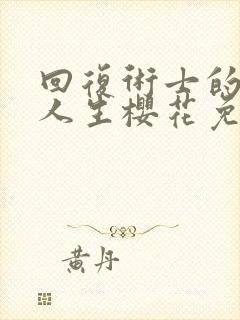 回復術士的
人生櫻花免
黃丹